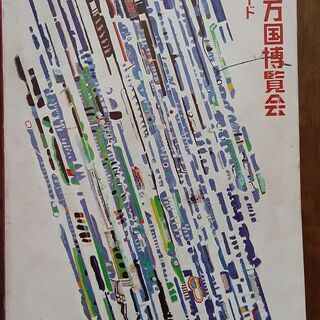 万国博覧会
ード